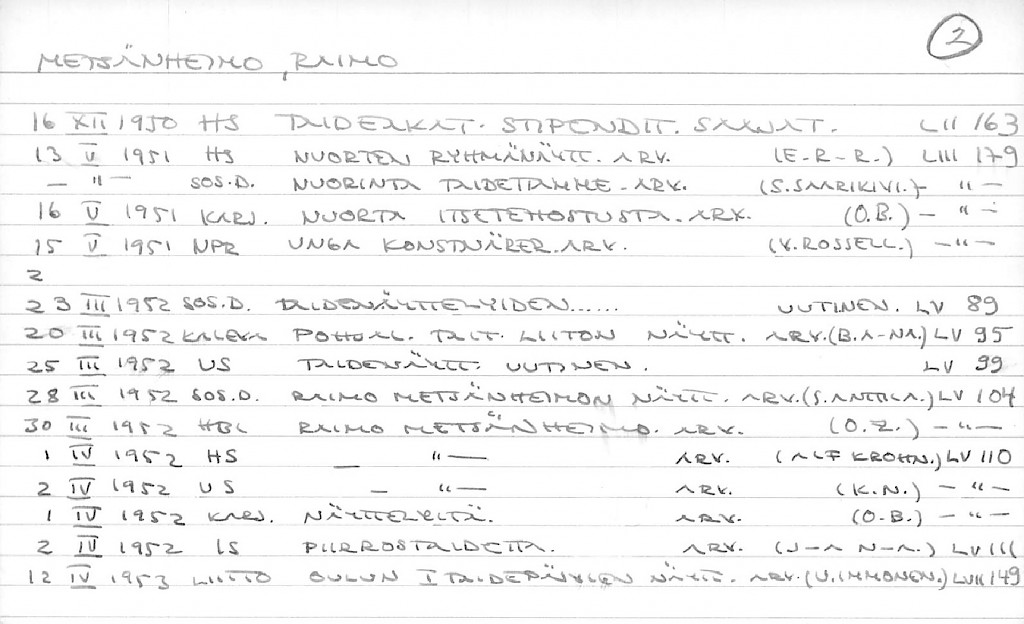 2
METSÄNHEIMO, RAIMO
16 XII 1950 HS TAIDEAKAT. STIPENDIT. SAAJAT. LII 163
13 V 1951 HS NUORTEN RYHMÄNÄYTT. ARV. (E-R-R.) LIII 179
— " — SOS.D. NUORINTA TAIDETAMME - ARV. (S.SAARIKIVI.) — " —
16 V 1951 KARJ. NUORTA ITSETEHOSTUSTA. ARV. (O.B.) — " —
15 V 1951 NPR UNGA KONSTNÄRER. ARV. (V.ROSSELL.) — " —
2
23 III 1952 SOS.D. TAIDENÄYTTELYIDEN...... UUTINEN. LV 89
20 III 1952 KALEVA POHJAL. TAIT. LIITON NÄYTT. ARV.(B.A-NA.) LV 95
25 III 1952 US TAIDENÄYTT. UUTINEN. LV 99
28 III 1952 SOS.D. RAIMO METSÄNHEIMON NÄYTT. ARV.(S.ANTTILA.) LV 104
30 III 1952 HBL RAIMO METSÄNHEIMO. ARV. (O.Z.) — " —
1 IV 1952 HS — " — ARV. (ALF KROHN.) LV 110
2 IV 1952 US — " — ARV. (K.N.) — " —
1 IV 1952 KARJ. NÄYTTELYITÄ. ARV. (O.B.) — " —
2 IV 1952 IS PIIRROSTAIDETTA. ARV. (J-A N-A.) LV 111
12 IV 1953 LIITTO OULUN I TAIDEPÄIVIEN NÄYTT. ARV.(U.IMMONEN.) LVII 149